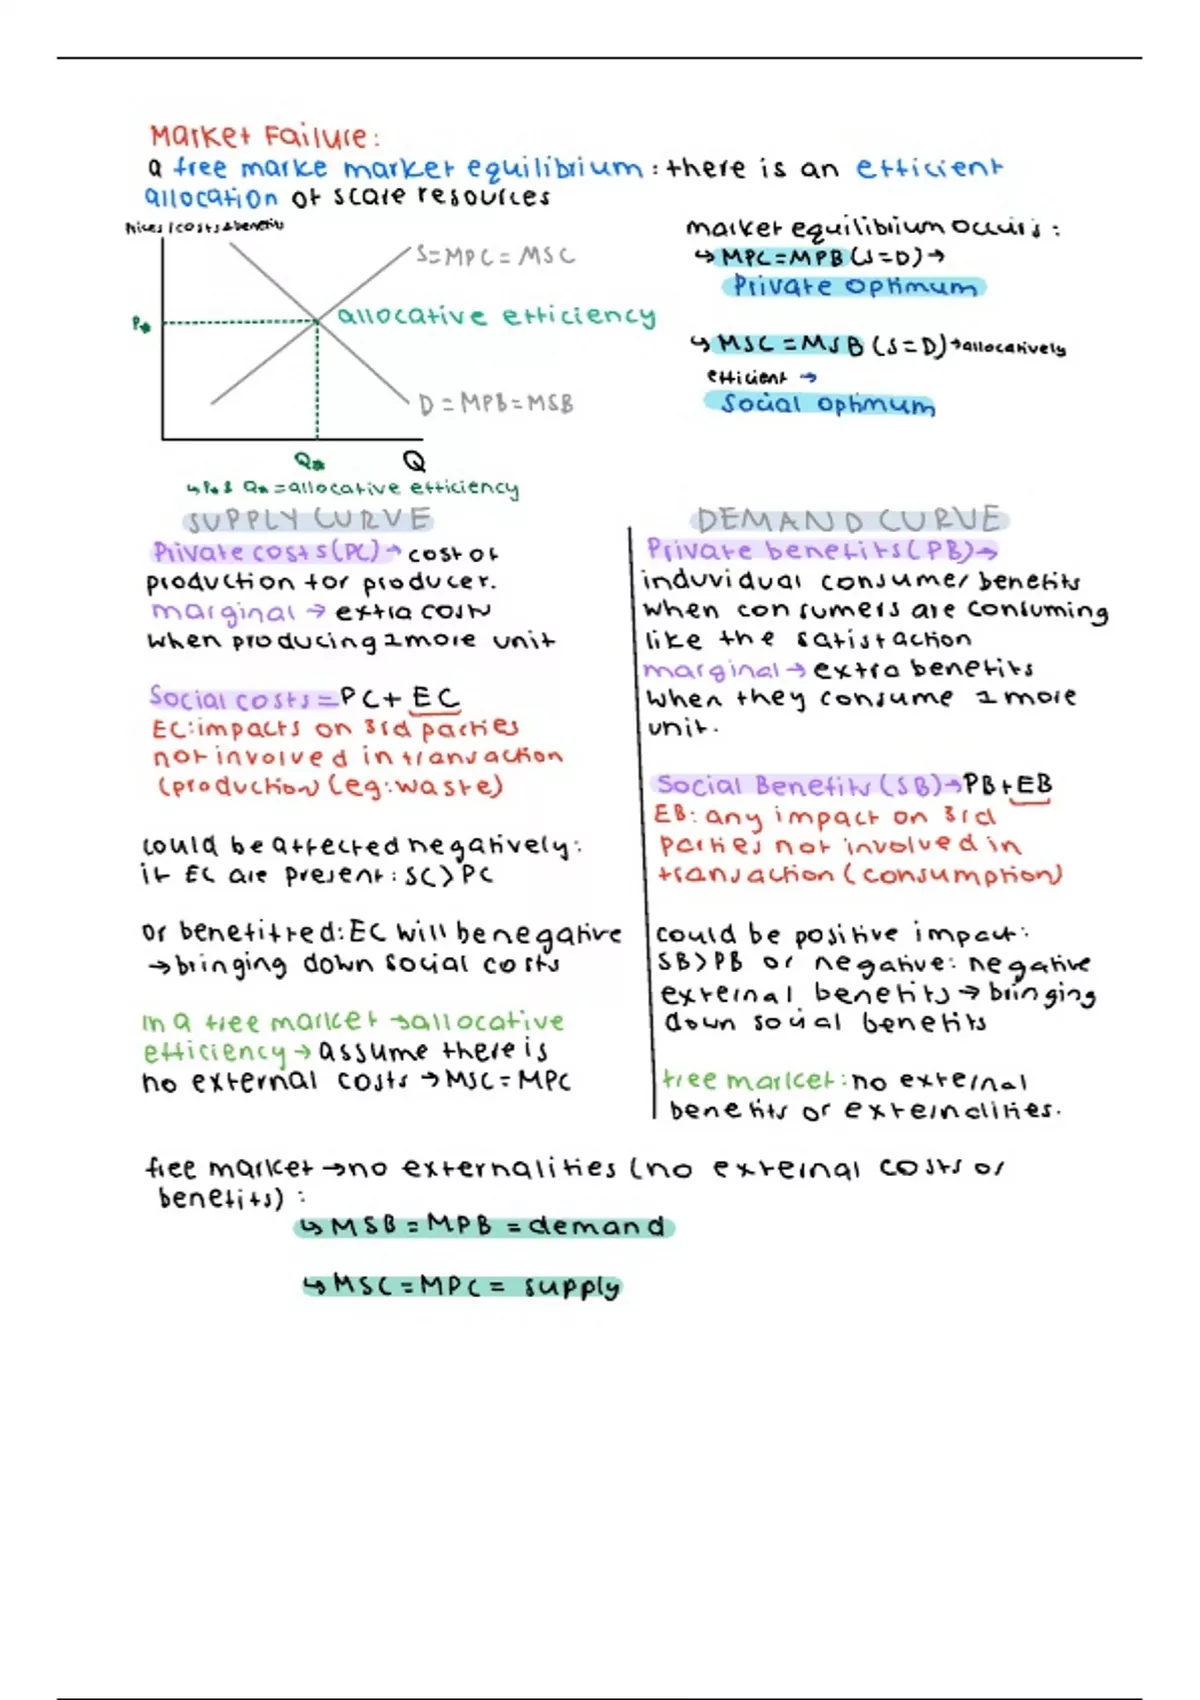 Market Failure:
a free marke market equilibrium: there is an efficient
allocation of scare resources
Prices/costs&benefits
S=MPC=MSC
allocative efficiency
P*
D=MPB=MSB
Q* Q
↳P*& Q*=allocative efficiency
market equilibrium occurs:
↳ MPC=MPB(S=D)→
Private optimum
↳ MSC=MSB (S=D)→allocatively
efficient →
Social optimum
SUPPLY CURVE
Private costs(PC)→ cost of
production for producer.
marginal → extra costs
when producing 1 more unit
Social costs=PC+ EC
EC:impacts on 3rd parties
not involved in transaction
(production)(eg:waste)
could be affected negatively:
if EC are present: SC>PC
or benefitted:EC will be negative
→bringing down social costs
In a free market →allocative
efficiency→ assume there is
no external costs →MSC=MPC
DEMAND CURVE
Private benefits(PB)→
induvidual consumer benefits
when consumers are consuming
like the satisfaction
marginal→ extra benefits
when they consume 1 more
unit.
Social Benefits(SB)→PB+EB
EB: any impact on 3rd
parties not involved in
transaction(consumption)
could be positive impact:
SB>PB or negative: negative
external benefits → bringing
down social benefits
free market: no external
benefits or externalities.
free market →no externalities (no external costs or
benefits):
↳ MSB=MPB =demand
↳ MSC=MPC= supply